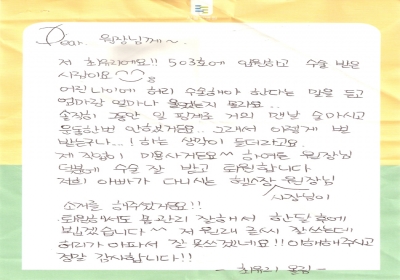 Dear. 원장님께~.
저 최유리에요!! 503호에 입원하고 수술 받은
시Kwon이요
어린나이에 허리 수술해야 한다는 말을 듣고
엄마랑 얼마나 울었는지 몰라요..
솔직히 그동안 일 핑계로 거의 맨날 술마시고
운동한번 안했거든요.. 그래서 이렇게 벌
받는구나...! 하는 생각이 들더라고요.
제 직업이 미용사거든요~ 하여튼 원장님
덕분에 수술 잘 받고 퇴원합니다.
저희 아빠가 다니시는 헬스장 원장님
사장님이
소개를 해주셨거든요!!
퇴원해서도 몸관리 잘해서 한달후에
뵙겠습니다~ 저 원래 글씨 잘쓰는데
허리가 아파서 잘 못쓰겠네요!! 이해해주시고
정말 감사합니다!!
- 최유리 올림 -